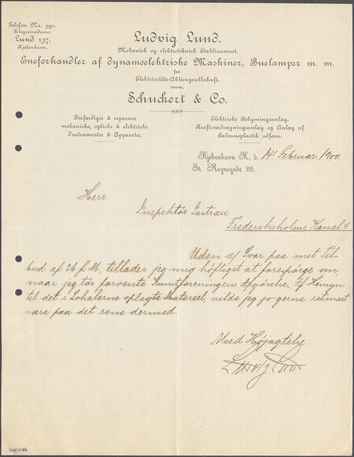 Telefon No. 390.
Telegramadresse:
Lund 137,
Kjøbenhavn.
Ludvig Lund.
Mekanisk og elektroteknisk Etablissement.
Eneforhandler af dynamoelektriske Maskiner, Buelamper m. m.
fra
Elektricitäts-Aktiengesellschaft
vorm.
Schuckert & Co.
Forfærdiger & reparerer
mekaniske, optiske & elektriske
Instrumenter & Apparater.
Elektriske Belysningsanlæg,
Kraftoverføringsanlæg og Anlæg af
Galvanoplastik udføres.
Kjøbenhavn K. d. 14 Februar 1900.
St. Regnegade
Herr
Inspektør
Frederiksholms Kanal
Uden af Svar paa mit Til-
bud af 26 f. M. tillader jeg mig høfligst at forespørge om,
naar jeg tør forvente Kunstforeningens Afgjørelse. Af Hensyn
til det i Lokalerne oplagte Materiel, vilde jeg jo gerne
være paa det rene dermed.
Med Højagtelse